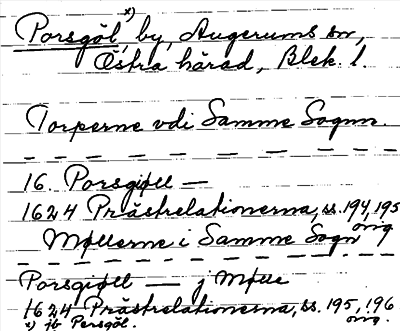 Porsgöl x), by, Augerums sn,
Östra härad, Blek. l.
Torperne vdi Samme Sognn.
16. Porsgiøll —
1624 Prästrelationerna, ss. 194, 195
orig
Møllerne i Samme Sogn
Porsgiøll — j Mølle
1624 Prästrelationerna, ss. 195, 196
orig.
x) jb Persgöl.